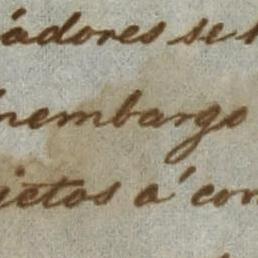 adores se
nembargo
jetos á con